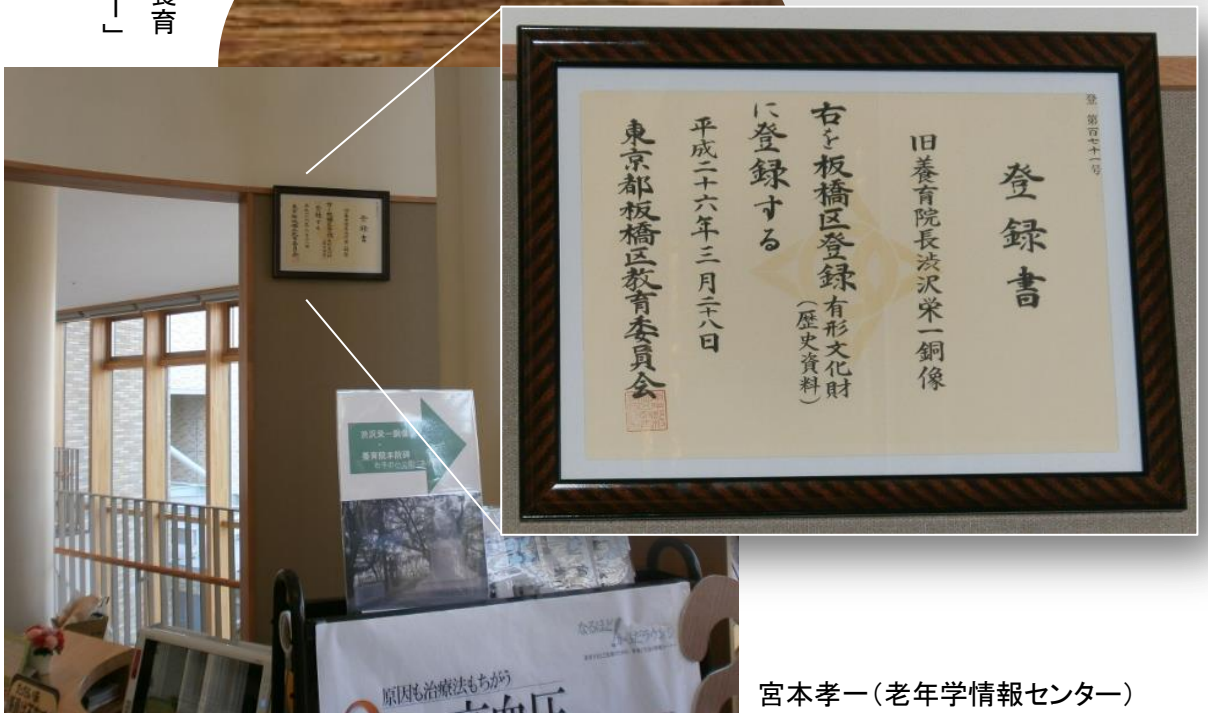 養育
ー」
登 第百七十一号
登録書
旧養育院長渋沢栄一銅像
右を板橋区登録有形文化財
(歴史資料)
に登録する
平成二十六年三月二十八日
東京都板橋区教育委員会
渋沢栄一銅像
養育院本院碑
なるほど!
原因も治療法もちがう
高血圧
宮本孝一(老年学情報センター)